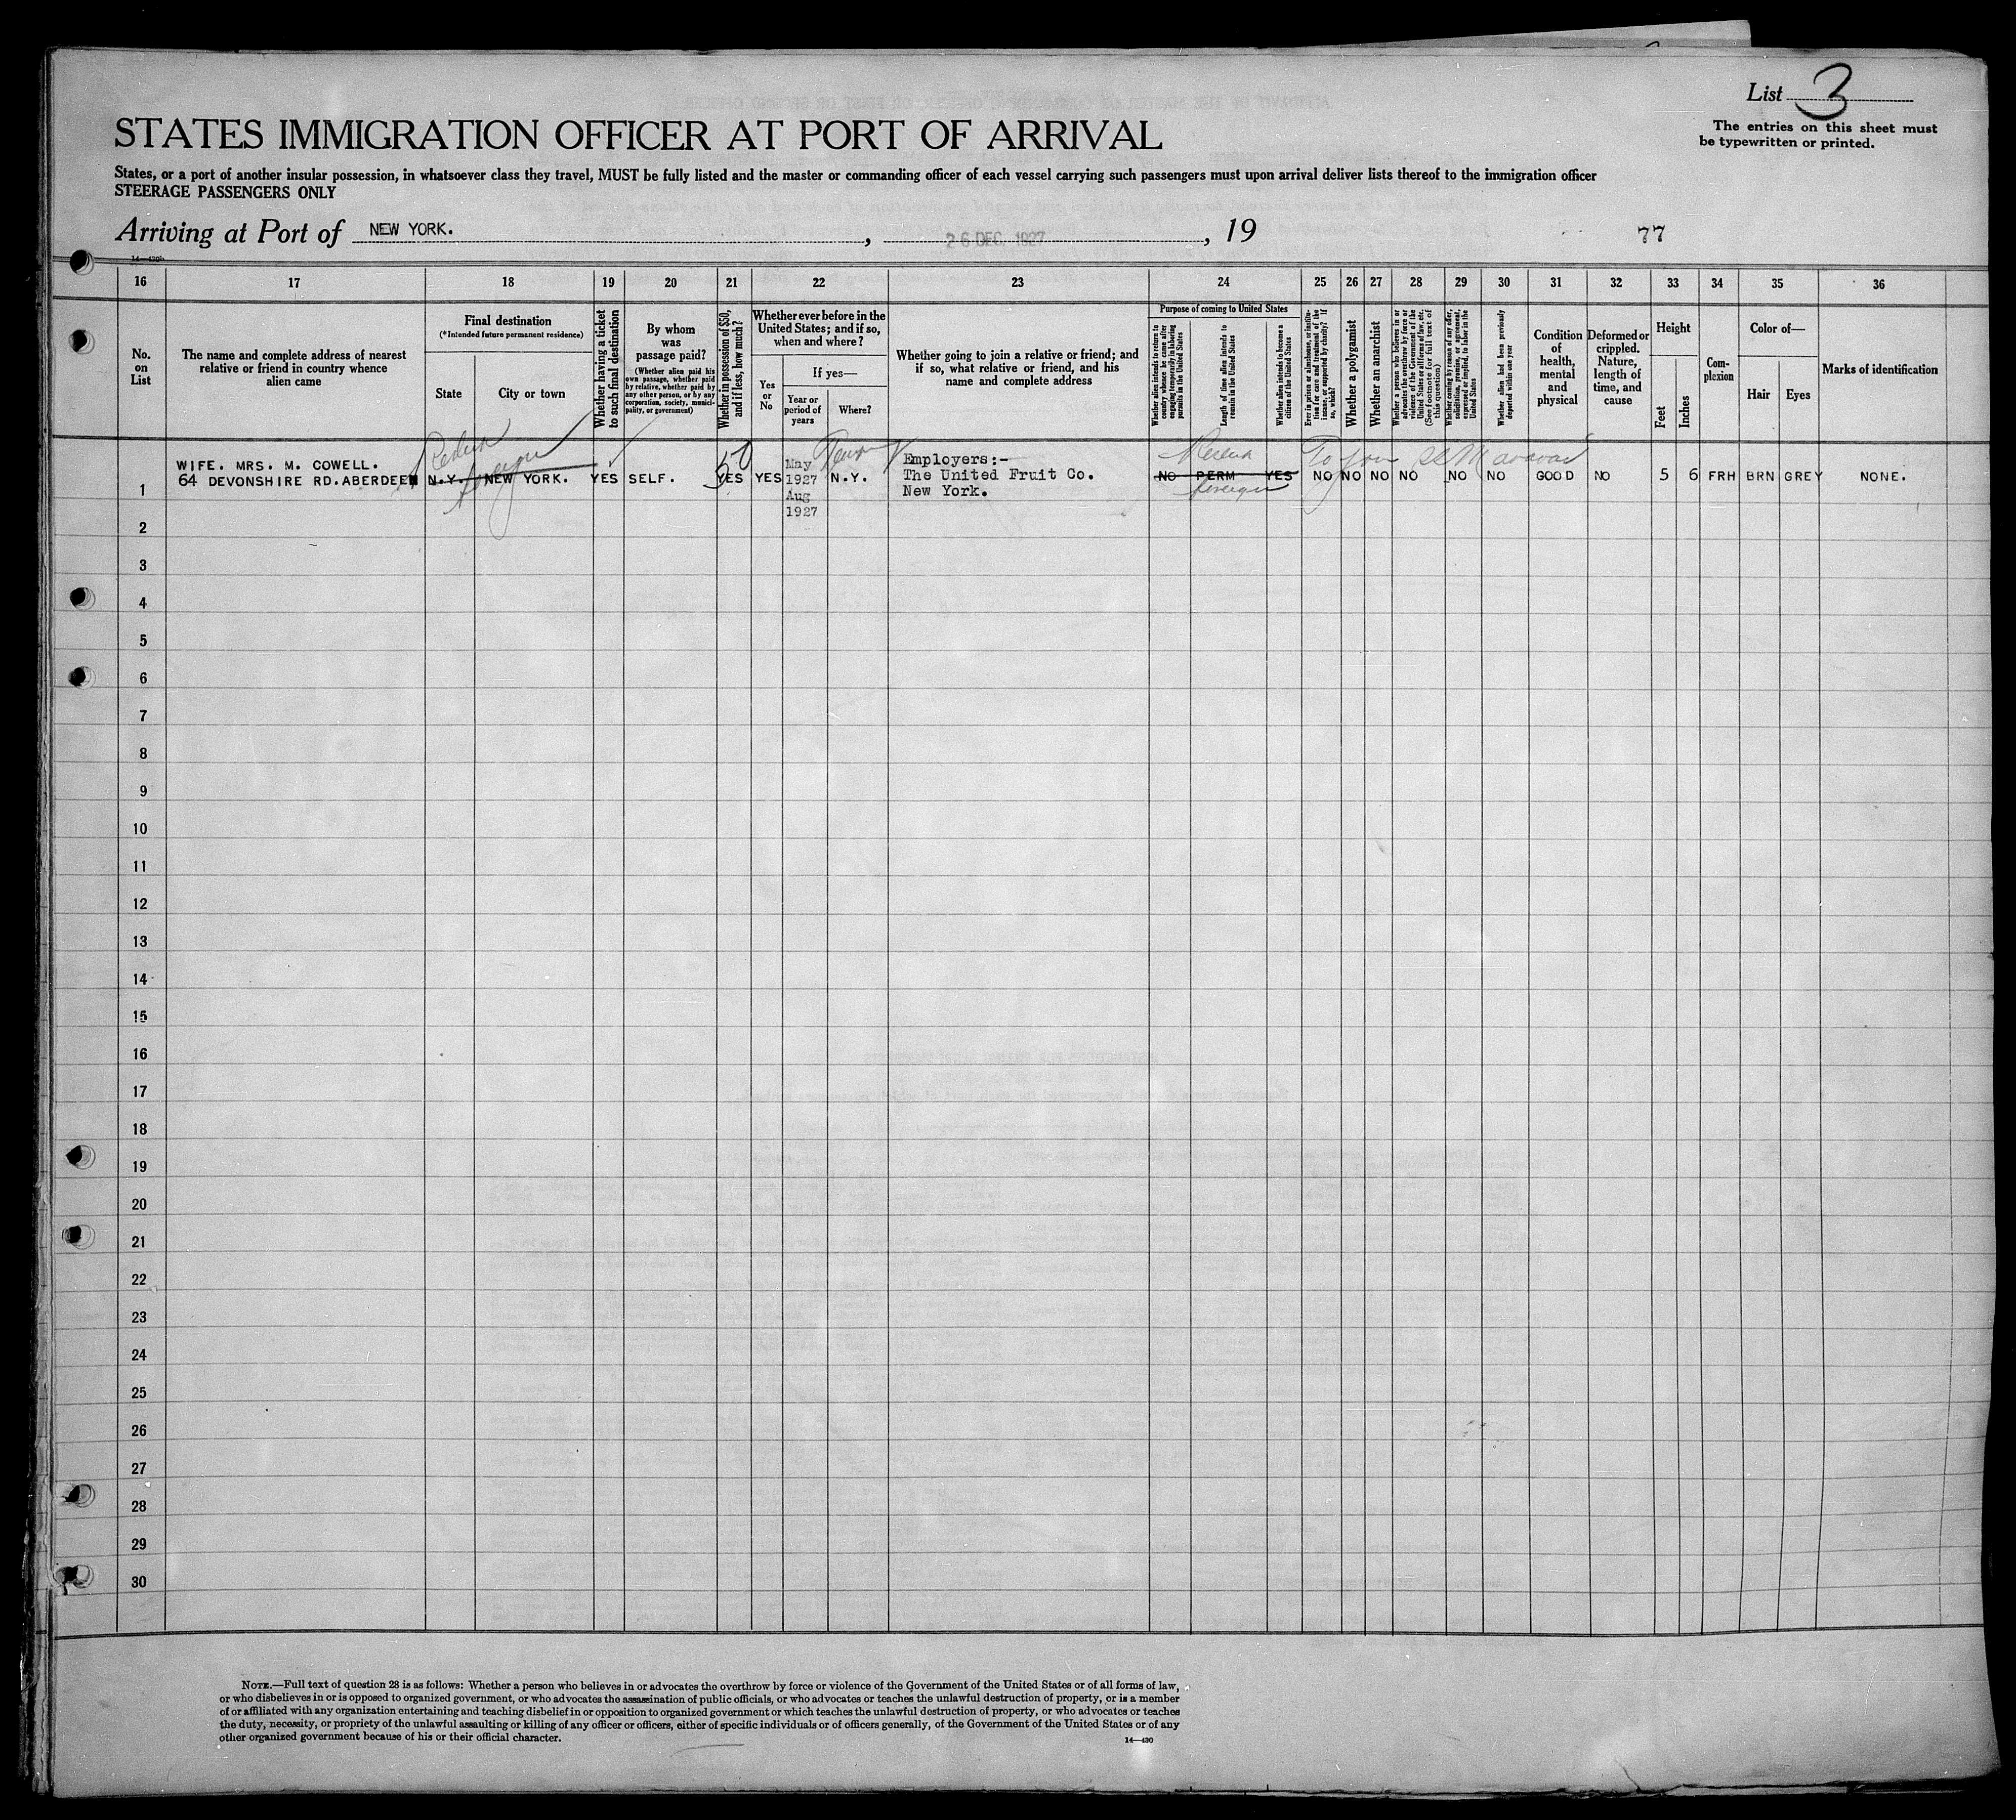 List 3
The entries on this sheet must
be typewritten or printed.
STATES IMMIGRATION OFFICER AT PORT OF ARRIVAL
States, or a port of another insular possession, in whatsoever class they travel, MUST be fully listed and the master or commanding officer of each vessel carrying such passengers must upon arrival deliver lists thereof to the immigration officer
STEERAGE PASSENGERS ONLY
Arriving at Port of NEW YORK. , 26 DEC. 1927 , 19
77
16 17 18 19 20 21 22 23 24 25 26 27 28 29 30 31 32 33 34 35 36
No.
on
List
The name and complete address of nearest
relative or friend in country whence
alien came
Final destination
(*Intended future permanent residence)
State
City or town
Whether having a ticket
to such final destination
By whom
was
passage paid?
(Whether alien paid his
own passage, whether paid
by relative, whether paid by
any other person, or by any
corporation, society, munici-
pality, or government)
Whether in possession of $50,
and if less, how much?
Whether ever before in the
United States; and if so,
when and where?
Yes
or
No
If yes—
Year or
period of
years
Where?
Whether going to join a relative or friend; and
if so, what relative or friend, and his
name and complete address
Purpose of coming to United States
Whether alien intends to return to
country whence he came after
engaging temporarily in laboring
pursuits in the United States
Length of time alien intends to
remain in the United States
Whether alien intends to become a
citizen of the United States
Ever in prison or almshouse, or institu-
tion for care and treatment of the
insane, or supported by charity? If
so, which?
Whether a polygamist
Whether an anarchist
Whether a person who believes in or
advocates the overthrow by force or
violence of the Government of the
United States or all forms of law, etc.
(See footnote for full text of
this question)
Whether coming by reason of any offer,
solicitation, promise, or agreement,
expressed or implied, to labor in the
United States
Whether alien had been previously
deported within one year
Condition
of
health,
mental
and
physical
Deformed or
crippled.
Nature,
length of
time, and
cause
Height
Feet
Inches
Com-
plexion
Color of—
Hair
Eyes
Marks of identification
WIFE. MRS. M. COWELL.
64 DEVONSHIRE RD.ABERDEEN
N.Y. NEW YORK. YES SELF. 50 YES YES
May
1927
Aug
1927
N.Y.
Employers:-
The United Fruit Co.
New York.
NO PERM YES NO NO NO NO NO NO GOOD NO 5 6 FRH BRN GREY NONE.
1
2
3
4
5
6
7
8
9
10
11
12
13
14
15
16
17
18
19
20
21
22
23
24
25
26
27
28
29
30
NOTE.—Full text of question 28 is as follows: Whether a person who believes in or advocates the overthrow by force or violence of the Government of the United States or of all forms of law,
or who disbelieves in or is opposed to organized government, or who advocates the assassination of public officials, or who advocates or teaches the unlawful destruction of property, or is a member
of or affiliated with any organization entertaining and teaching disbelief in or opposition to organized government or which teaches the unlawful destruction of property, or who advocates or teaches
the duty, necessity, or propriety of the unlawful assaulting or killing of any officer or officers, either of specific individuals or of officers generally, of the Government of the United States or of any
other organized government because of his or their official character.
14—430